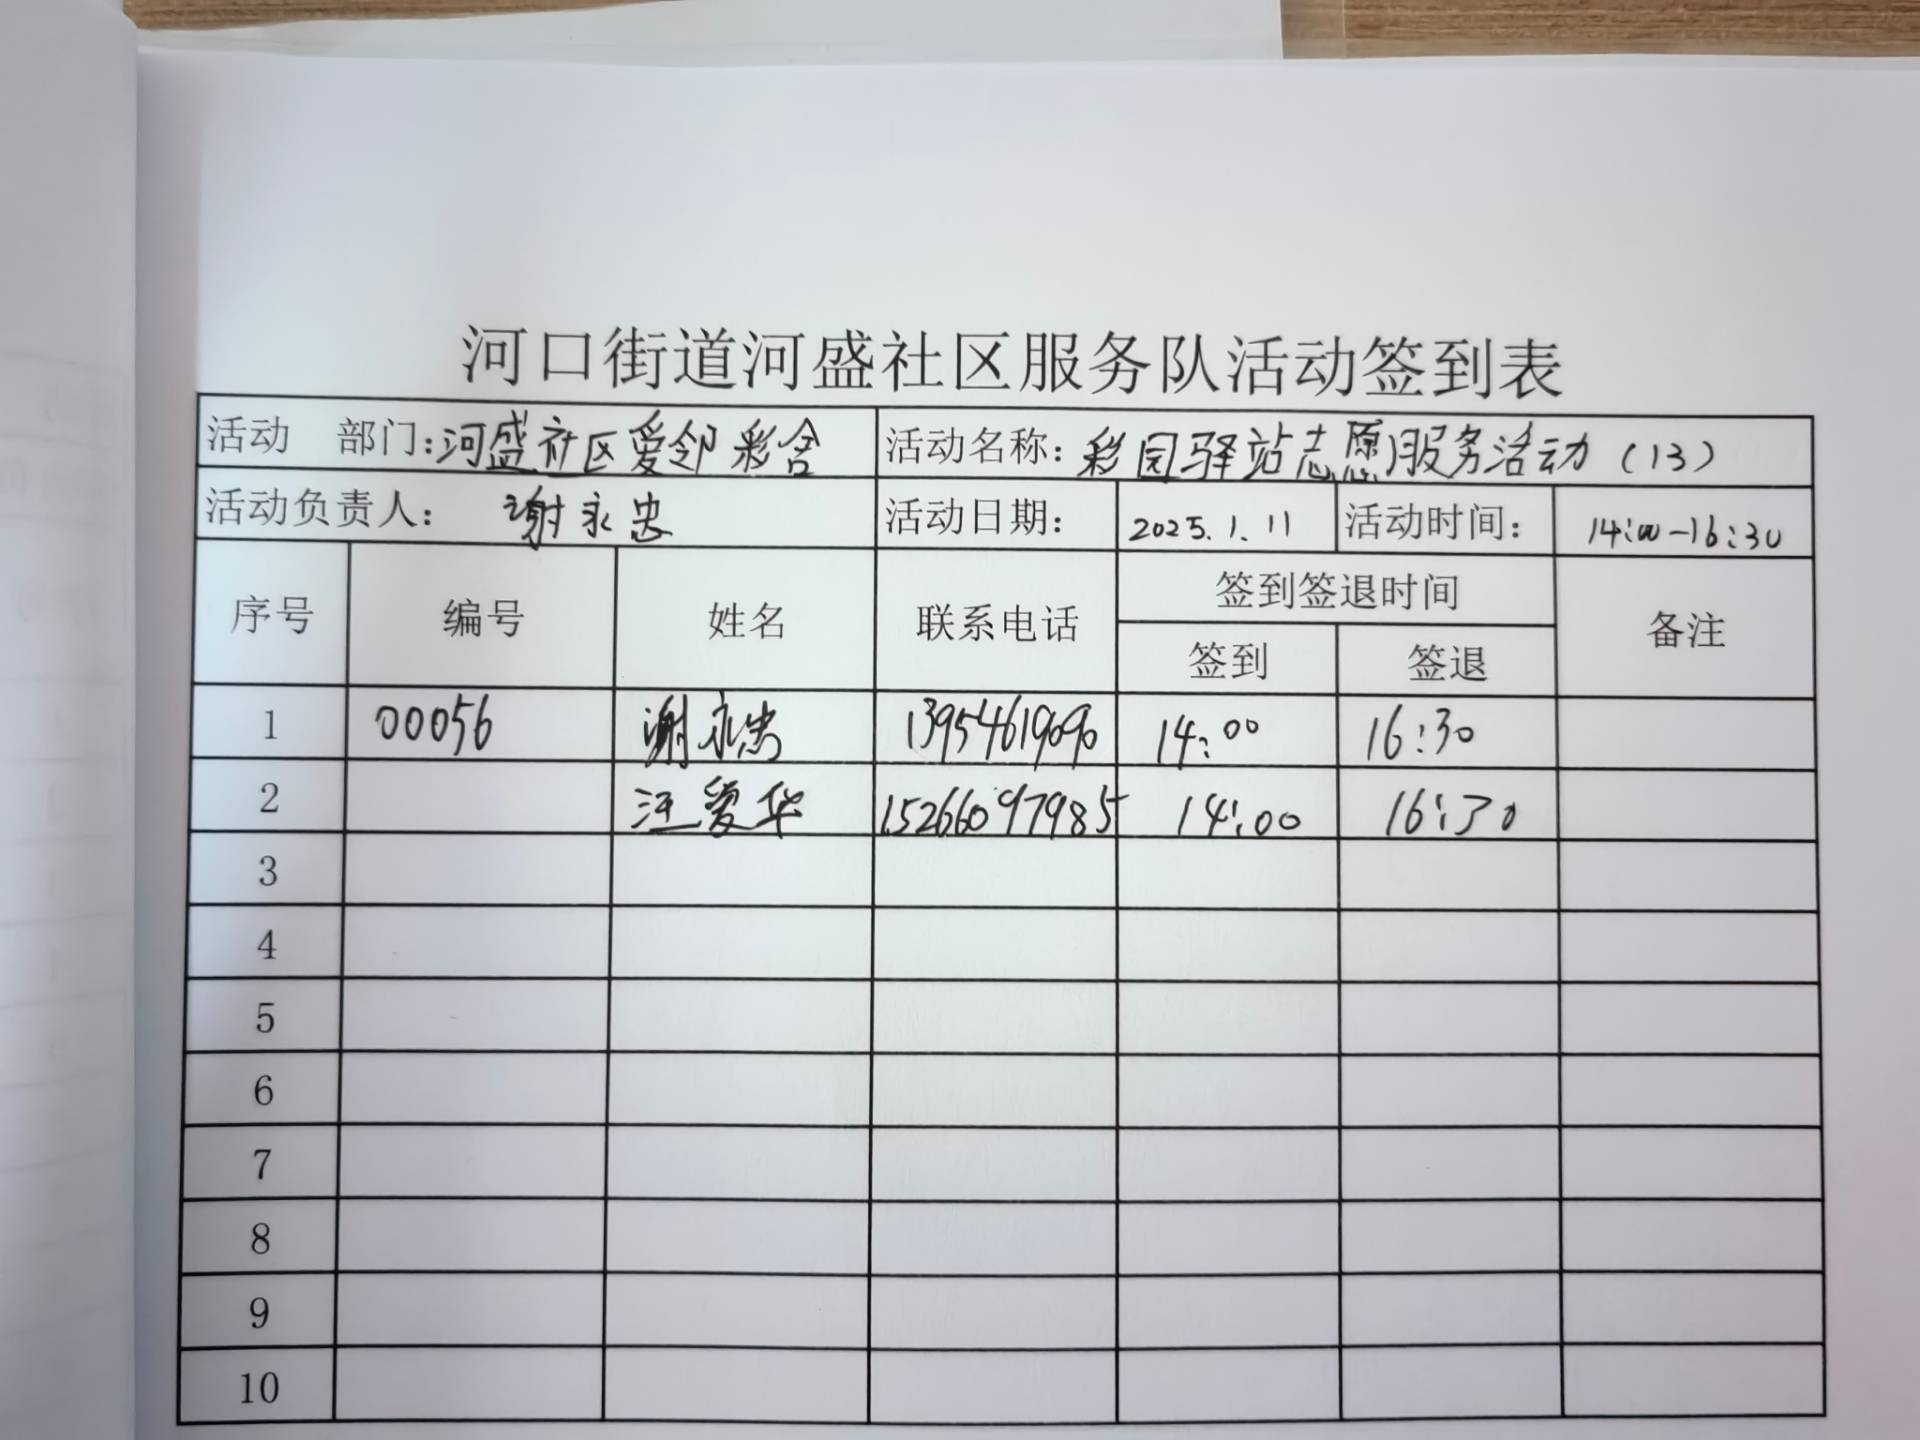 河口街道河盛社区服务队活动签到表
活动 部门：河盛社区爱邻彩舍 活动名称：彩园驿站志愿服务活动（13）
活动负责人： 谢永忠 活动日期： 2025.1.11 活动时间： 14:00-16:30
序号 编号 姓名 联系电话 签到签退时间 备注
签到 签退
1 00056 谢永忠 13954619090 14:00 16:30
2 汪爱华 15266097985 14:00 16:30
3
4
5
6
7
8
9
10